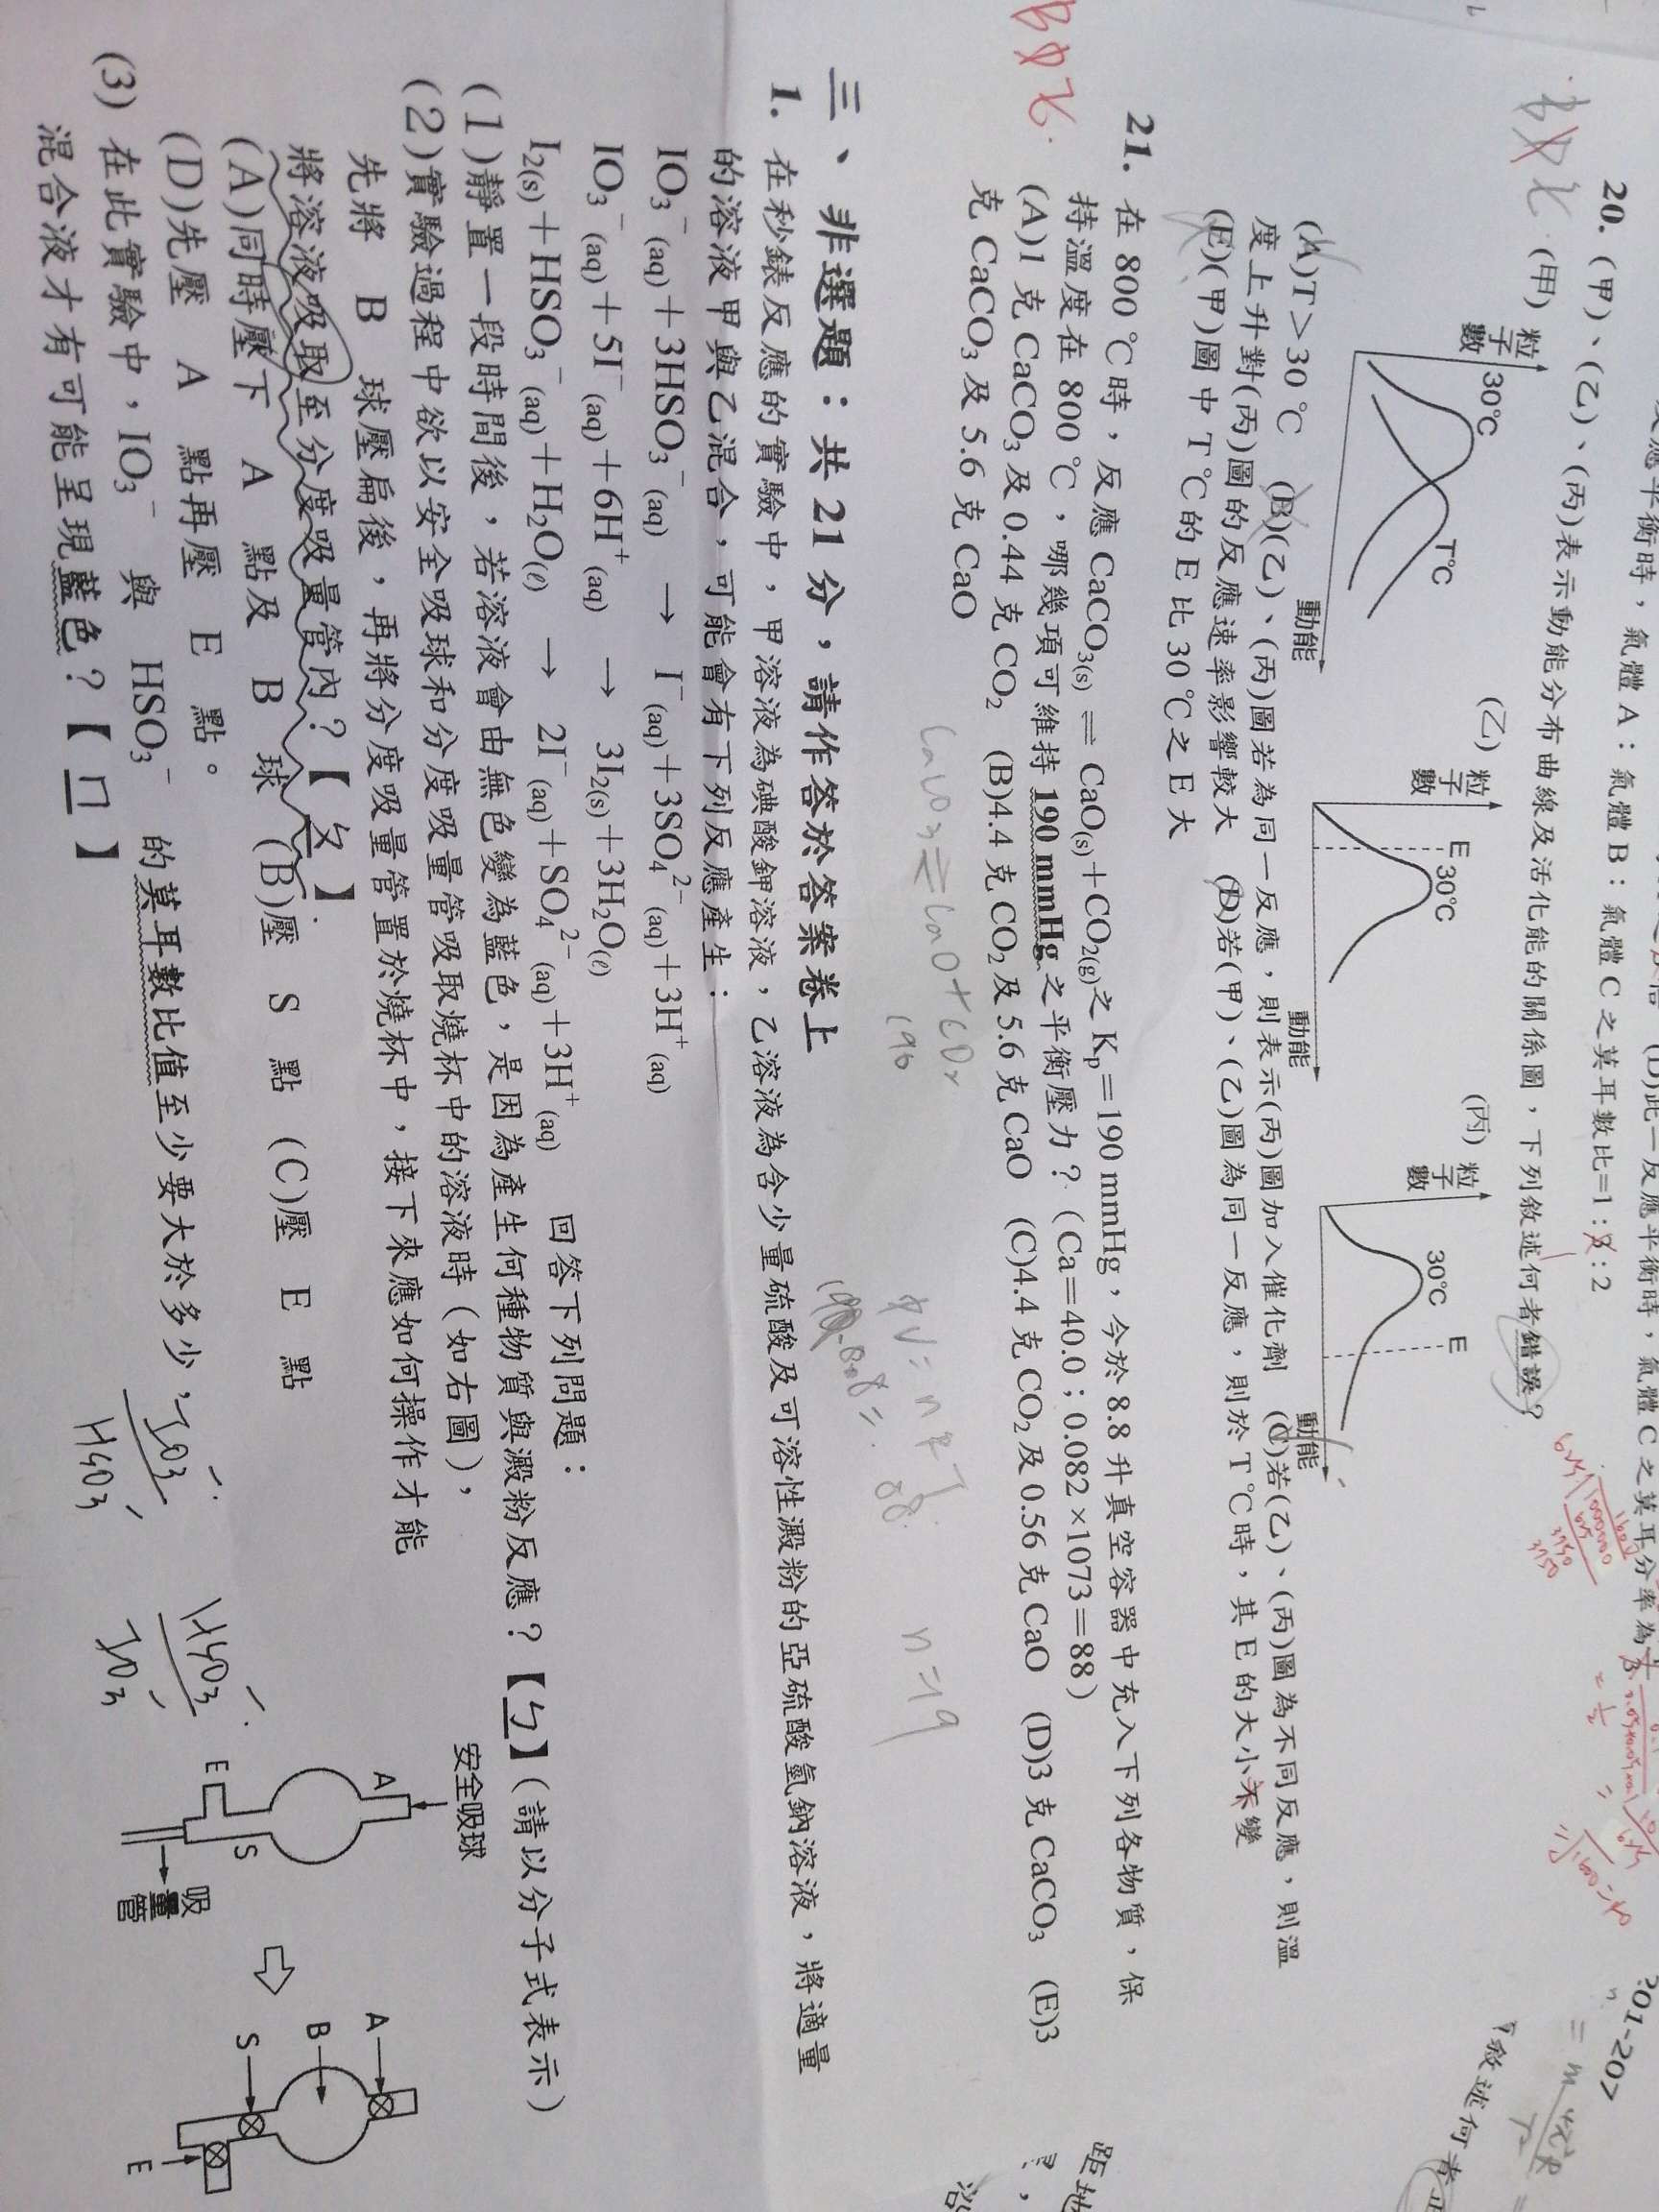 應平衡時，氣體A：氣體B：氣體C之莫耳數比=1：8：2
(D)此一反應平衡時，氣體C之莫耳分率為
20. (甲)、(乙)、(丙)表示動能分布曲線及活化能的關係圖，下列敘述何者錯誤？
(甲) 粒子數 30℃ T℃ 動能
(乙) 粒子數 E 30℃ 動能
(丙) 粒子數 30℃ E 動能
(A)T＞30℃ (B)(乙)、(丙)圖若為同一反應，則表示(丙)圖加入催化劑 (C)若(乙)、(丙)圖為不同反應，則溫
度上升對(丙)圖的反應速率影響較大 (D)若(甲)、(乙)圖為同一反應，則於T℃時，其E的大小不變
(E)(甲)圖中T℃的E比30℃之E大
21. 在800℃時，反應CaCO₃(s) ⇌ CaO(s)＋CO₂(g)之Kp＝190 mmHg，今於8.8升真空容器中充入下列各物質，保
持溫度在800℃，哪幾項可維持190 mmHg之平衡壓力？(Ca＝40.0；0.082×1073＝88)
(A)1克CaCO₃及0.44克CO₂ (B)4.4克CO₂及5.6克CaO (C)4.4克CO₂及0.56克CaO (D)3克CaCO₃ (E)3
克CaCO₃及5.6克CaO
CaCO₃ ⇌ CaO + CO₂
190
PV = nRT
88
n = 19
三、非選題：共21分，請作答於答案卷上
1. 在秒錶反應的實驗中，甲溶液為碘酸鉀溶液，乙溶液為含少量硫酸及可溶性澱粉的亞硫酸氫鈉溶液，將適量
的溶液甲與乙混合，可能會有下列反應產生：
IO₃⁻(aq)＋3HSO₃⁻(aq) → I⁻(aq)＋3SO₄²⁻(aq)＋3H⁺(aq)
IO₃⁻(aq)＋5I⁻(aq)＋6H⁺(aq) → 3I₂(s)＋3H₂O(ℓ)
I₂(s)＋HSO₃⁻(aq)＋H₂O(ℓ) → 2I⁻(aq)＋SO₄²⁻(aq)＋3H⁺(aq) 回答下列問題：
(1)靜置一段時間後，若溶液會由無色變為藍色，是因為產生何種物質與澱粉反應？【ㄅ】(請以分子式表示)
(2)實驗過程中欲以安全吸球和分度吸量管吸取燒杯中的溶液時（如右圖），
先將 B 球壓扁後，再將分度吸量管置於燒杯中，接下來應如何操作才能
將溶液吸取至分度吸量管內？【ㄆ】
(A)同時壓下 A 點及 B 球 (B)壓 S 點 (C)壓 E 點
(D)先壓 A 點再壓 E 點。
(3) 在此實驗中，IO₃⁻ 與 HSO₃⁻ 的莫耳數比值至少要大於多少，
混合液才有可能呈現藍色？【ㄇ】
IO₃⁻
HSO₃⁻
HSO₃⁻
IO₃⁻
安全吸球
A
E
S
吸量管
A
B
S
E